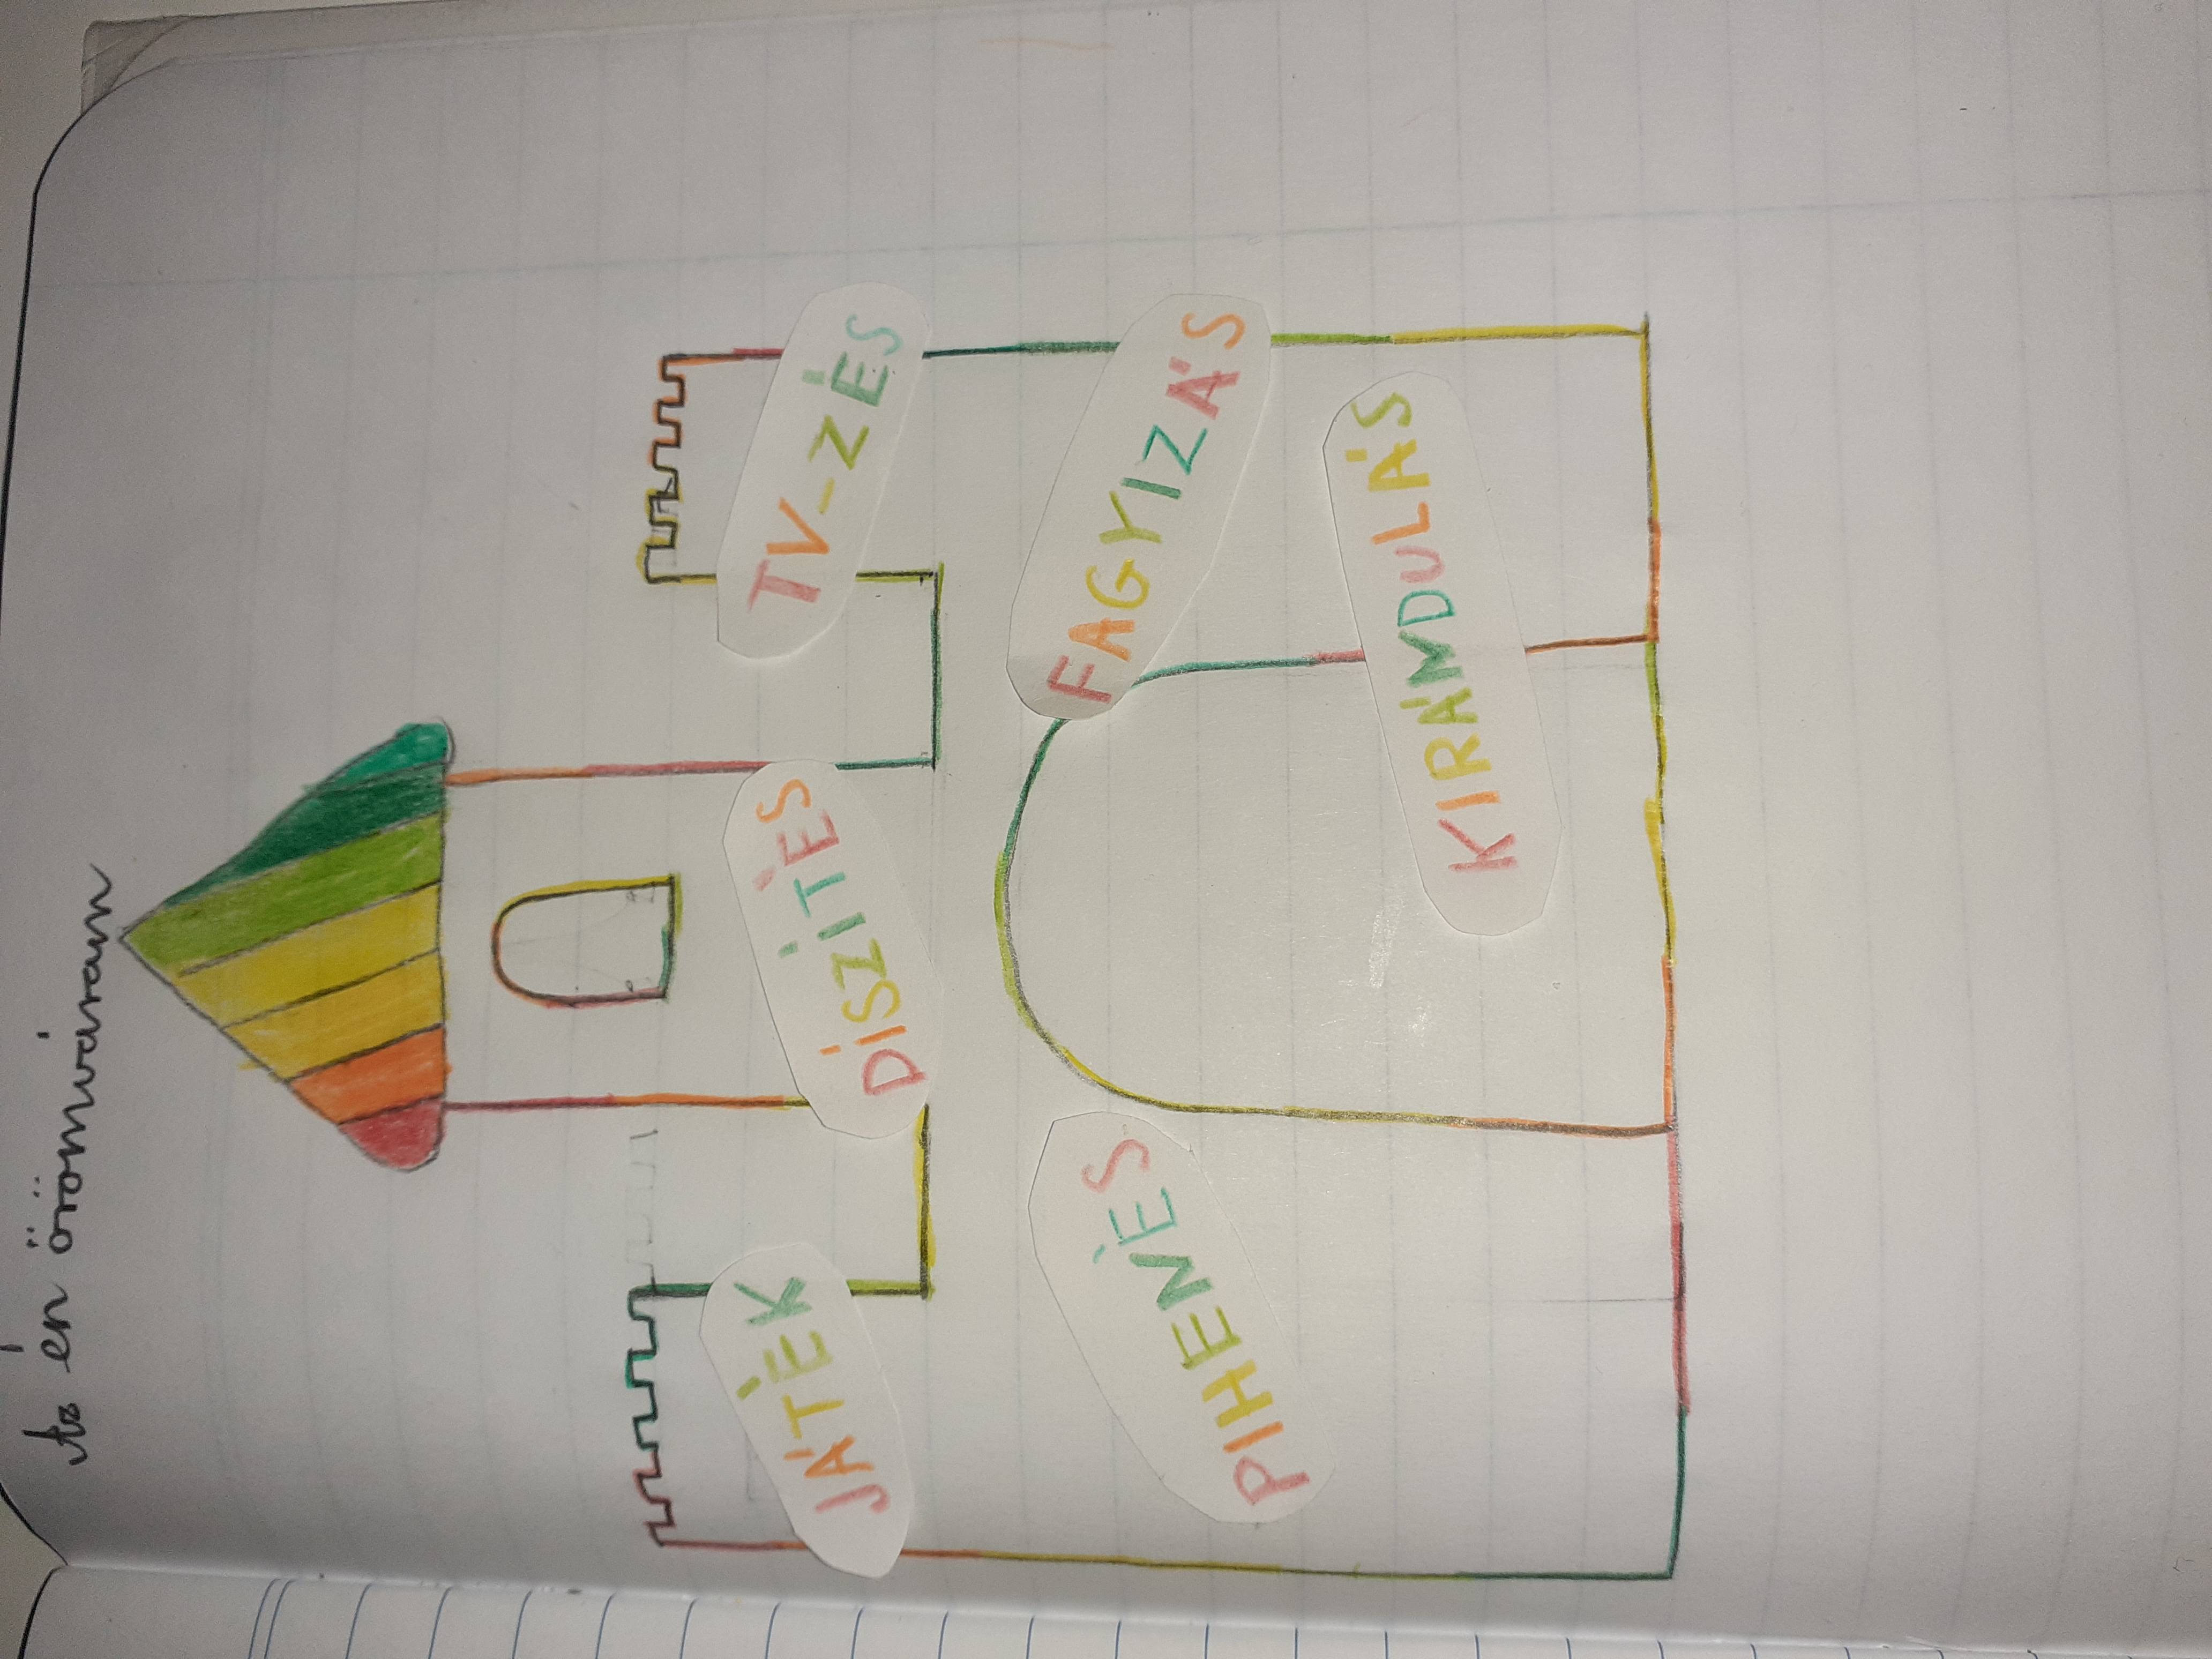 Az én örömváram
JÁTÉK
DÍSZÍTÉS
TV-ZÉS
PIHENÉS
FAGYIZÁS
KIRÁNDULÁS